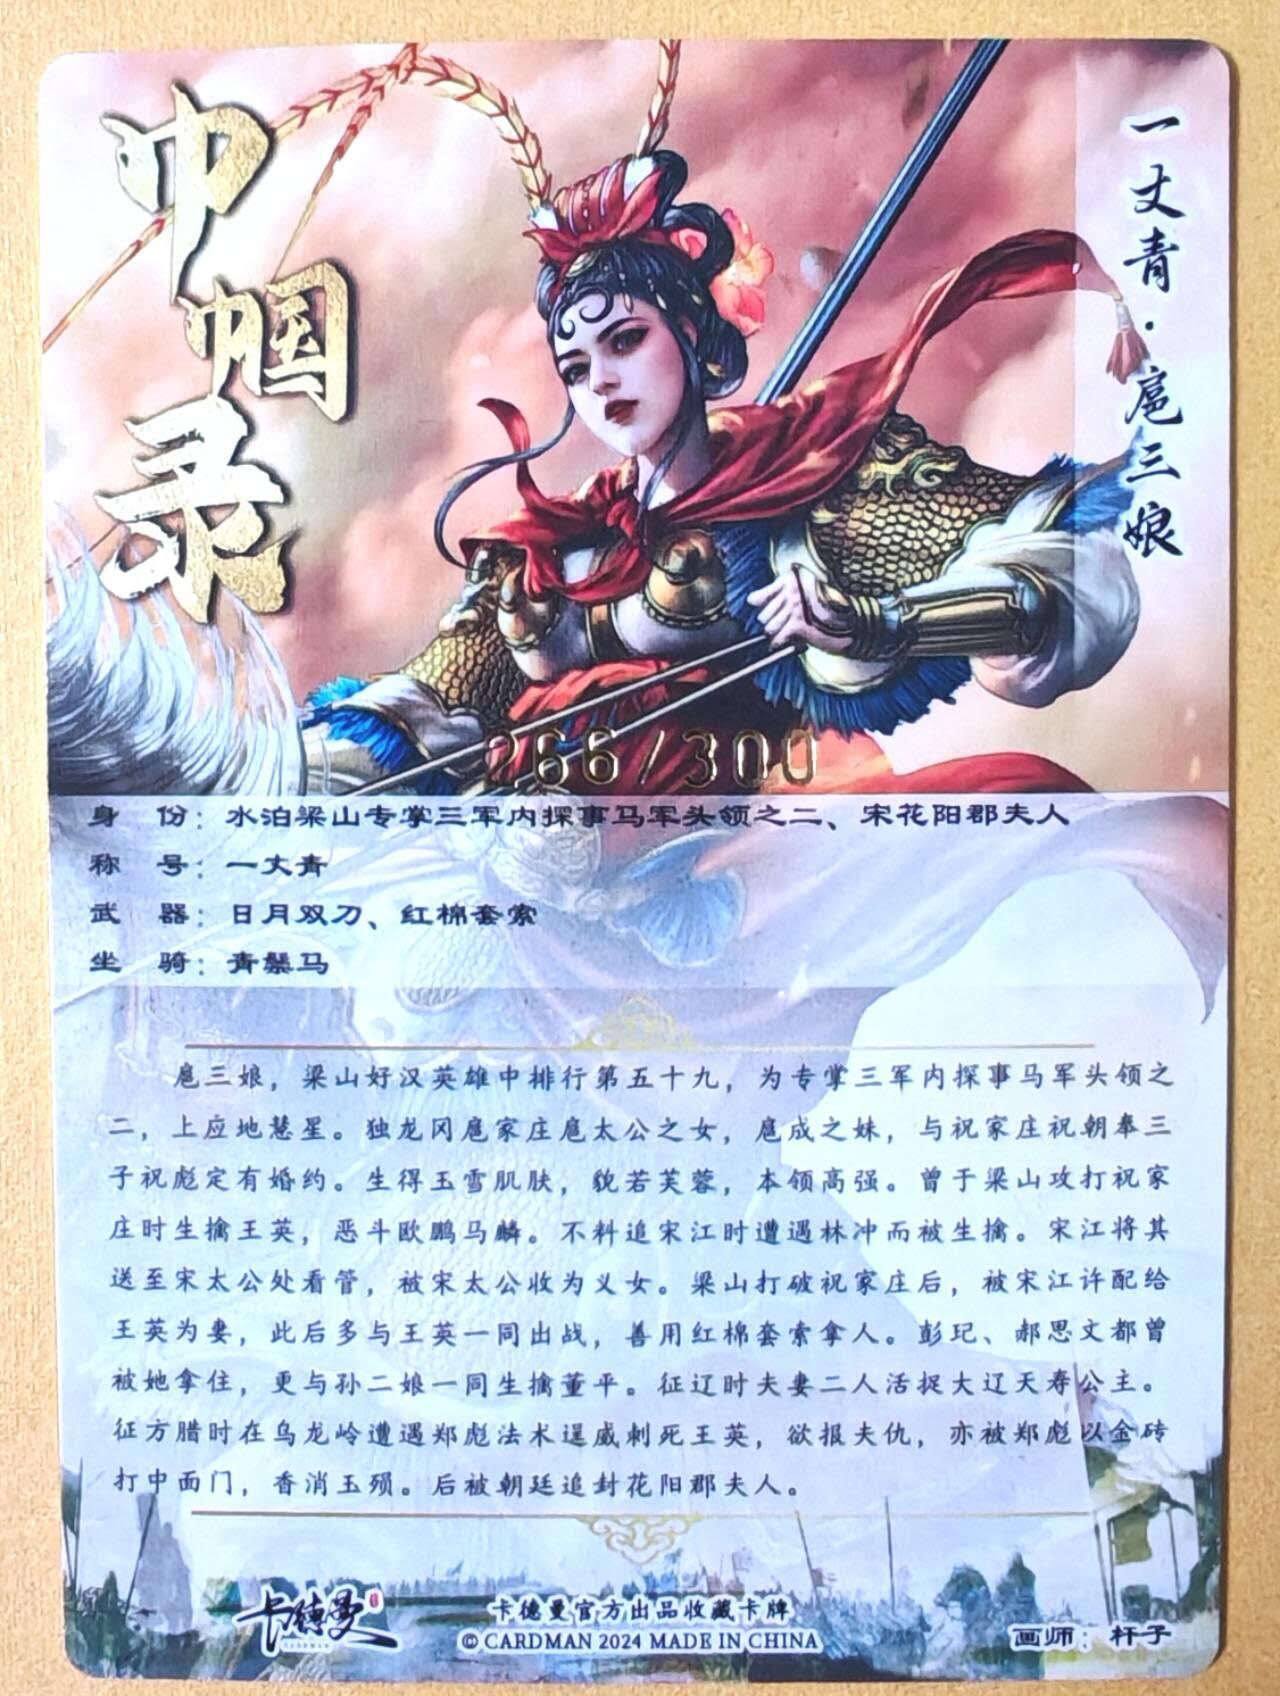 巾帼录
一丈青·扈三娘
266/300
身 份：水泊梁山专掌三军内探事马军头领之二、宋花阳郡夫人
称 号：一丈青
武 器：日月双刀、红棉套索
坐 骑：青鬃马
扈三娘，梁山好汉英雄中排行第五十九，为专掌三军内探事马军头领之
二，上应地慧星。独龙冈扈家庄扈太公之女，扈成之妹，与祝家庄祝朝奉三
子祝彪定有婚约。生得玉雪肌肤，貌若芙蓉，本领高强。曾于梁山攻打祝家
庄时生擒王英，恶斗欧鹏马麟。不料追宋江时遭遇林冲而被生擒。宋江将其
送至宋太公处看管，被宋太公收为义女。梁山打破祝家庄后，被宋江许配给
王英为妻，此后多与王英一同出战，善用红棉套索拿人。彭玘、郝思文都曾
被她拿住，更与孙二娘一同生擒董平。征辽时夫妻二人活捉大辽天寿公主。
征方腊时在乌龙岭遭遇郑彪法术逞威刺死王英，欲报夫仇，亦被郑彪以金砖
打中面门，香消玉殒。后被朝廷追封花阳郡夫人。
卡德曼
CARDMAN
卡德曼官方出品收藏卡牌
© CARDMAN 2024 MADE IN CHINA
画师：杆子